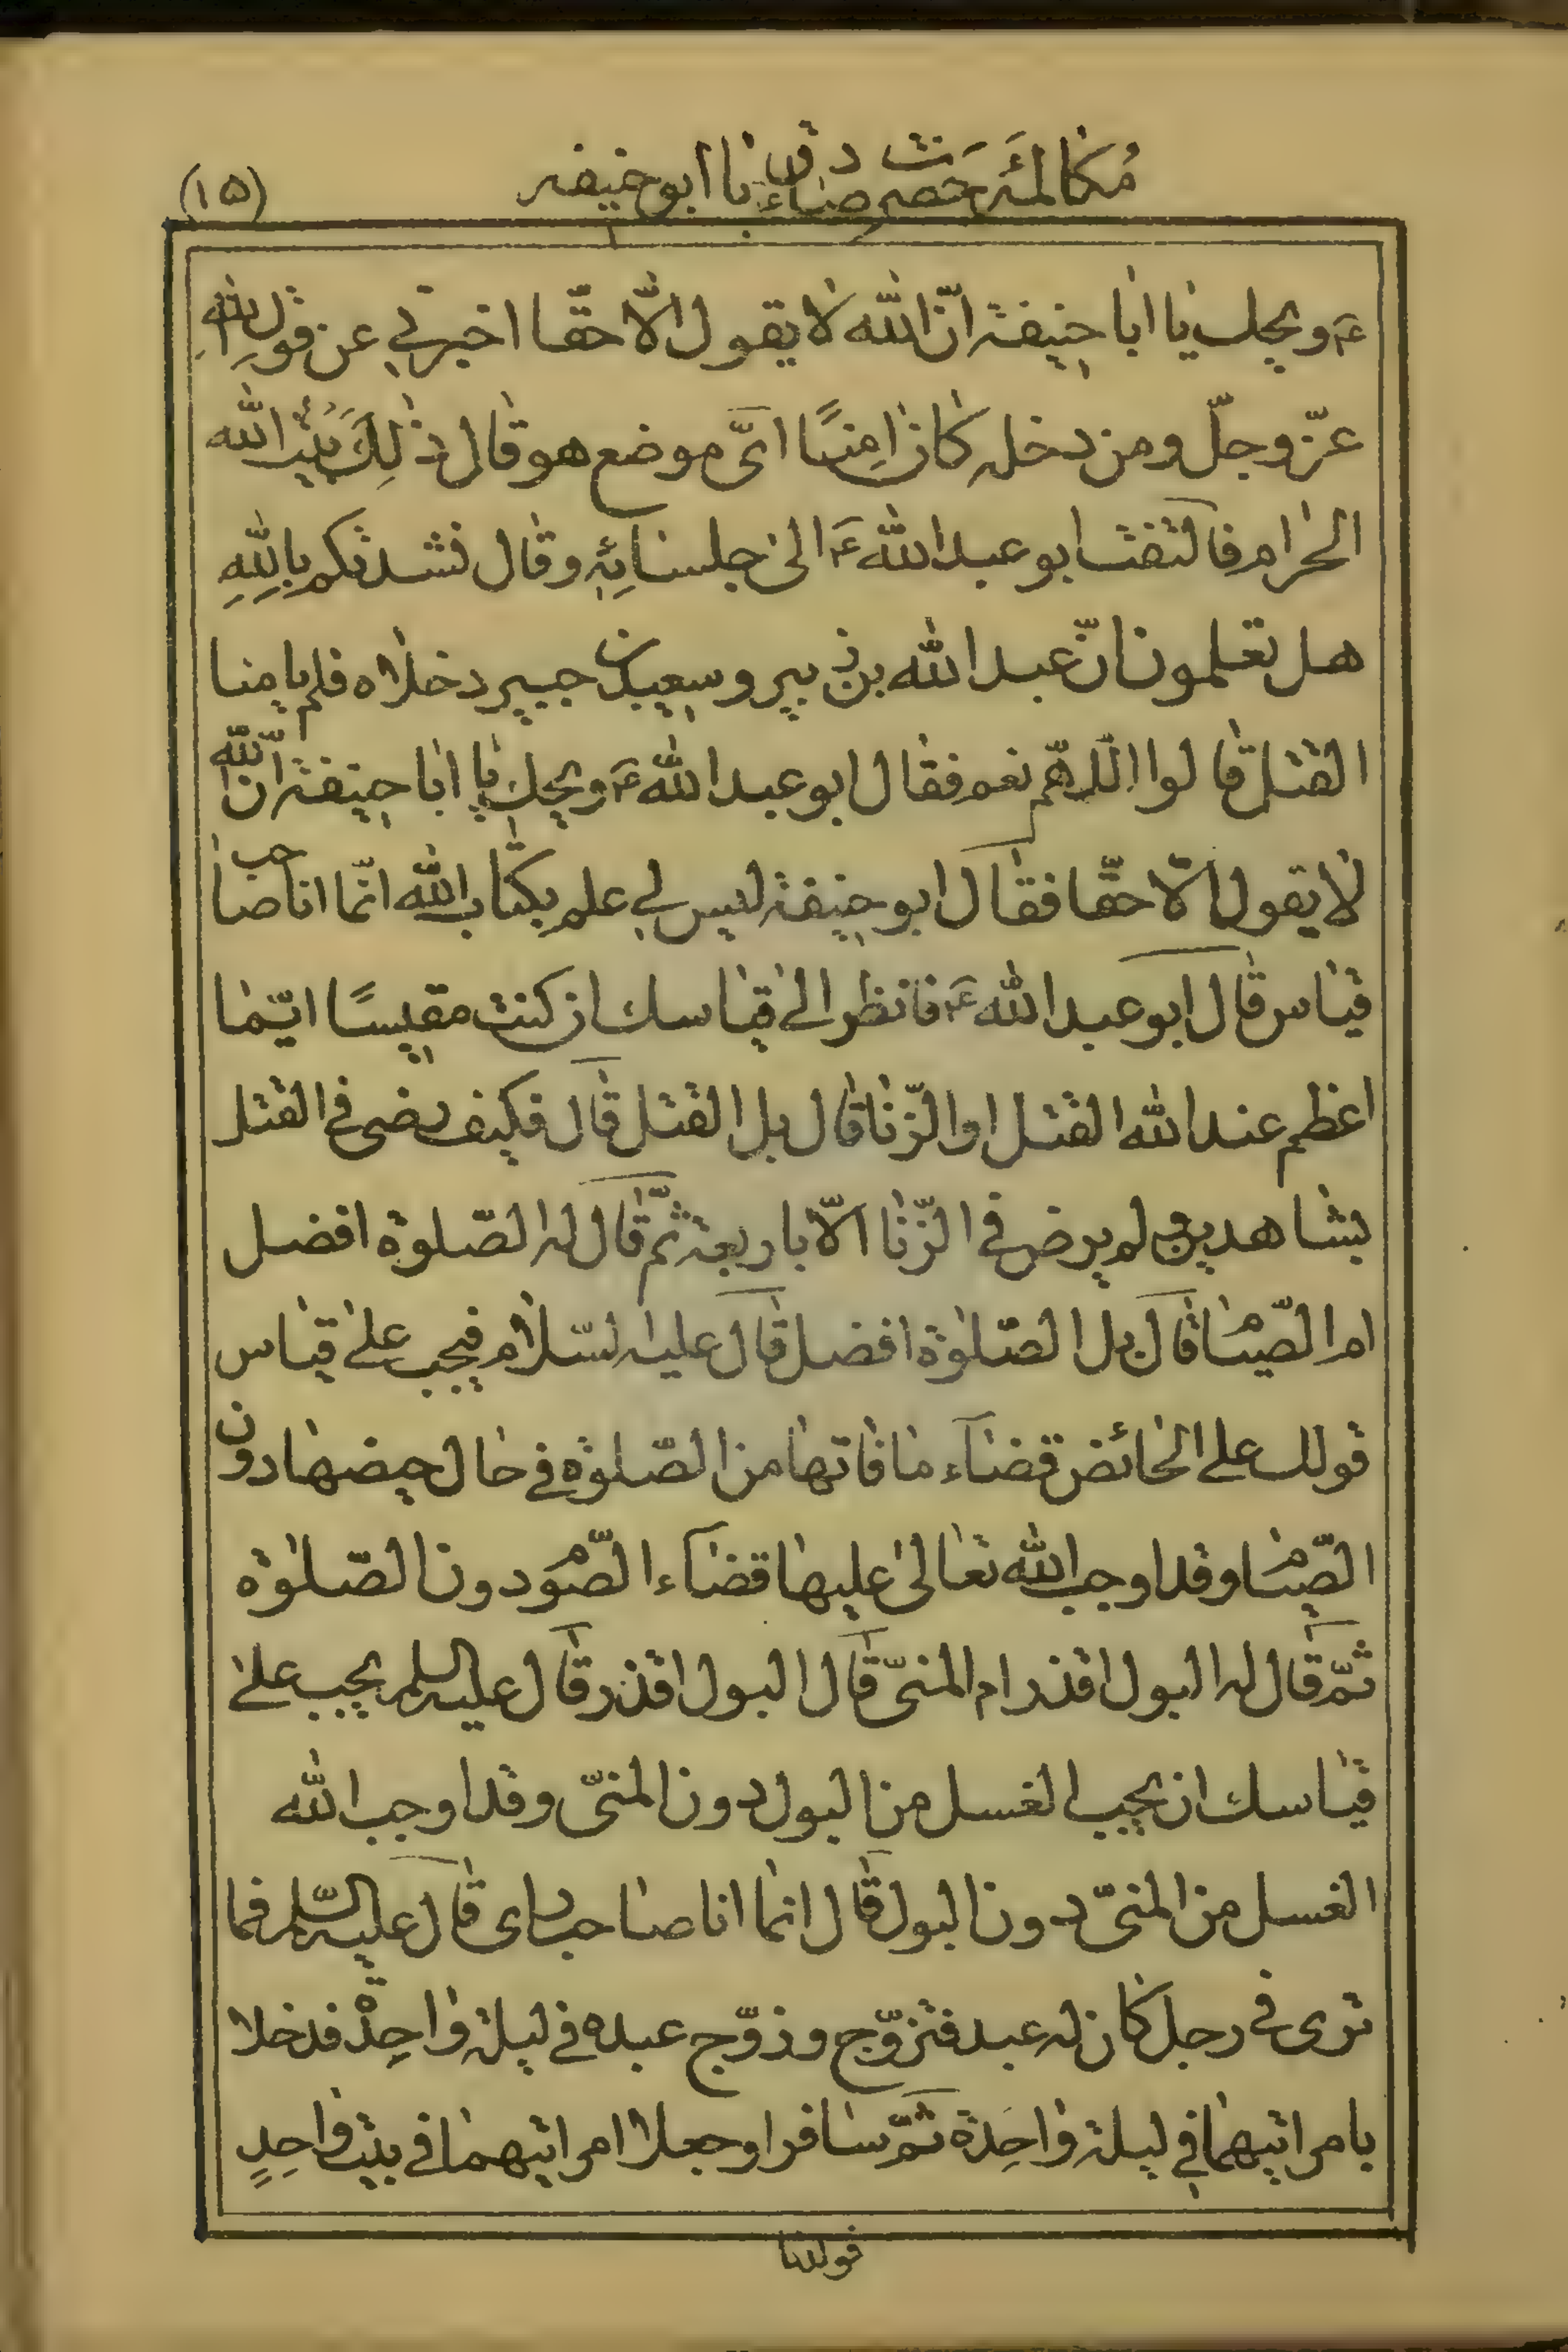 مُکالمَۀ حَضرَت صادق ع با ابوحنیفه
(۱۵)
ع ويحك يا ابا حنيفة انّ الله لا يقول الّا حقّا اخبرني عن قول الله
عزّ وجلّ ومن دخله كان امِنًا ايّ موضع هو قال ذٰلِكَ بَيْتُ الله
الحرام فالتفت ابو عبد الله ع الى جلسائِهِ وقال نشدتكم بِاللهِ
هل تعلمون انّ عبد الله بن زبير وسعيد بن جبير دخلاه فلم يامنا
القتل قالوا اللّهمّ نعم فقال ابو عبد الله ع ويحك يا ابا حنيفة انّ الله
لا يقول الّا حقّا فقال ابو حنيفة ليس لي علم بكتاب الله انّما انا صاحب
قياس قال ابو عبد الله ع فانظر الى قياسك ان كنت مقيسًا ايّما
اعظم عند الله القتل او الزّنا قال بل القتل قال فكيف رضى في القتل
بشاهدين ولم يرض في الزّنا الّا باربعة ثمّ قال له الصّلوة افضل
ام الصّيام قال بل الصّلوة افضل قال عليه السّلام فيجب على قياس
قولك على الحائض قضاء ما فاتها من الصّلوة في حال حيضها دون
الصّيام وقد اوجب الله تعالى عليها قضاء الصّوم دون الصّلوة
ثمّ قال له البول اقذر ام المنيّ قال البول اقذر قال عليه السلم يجب على
قياسك ان يجب الغسل من البول دون المنيّ وقد اوجب الله
الغسل من المنيّ دون البول قال انما انا صاحب راى قال عليه السّلم فما
ترى في رجل كان له عبد فتزوّج وزوّج عبده في ليلة واحِدة فدخلا
بامراتيهما في ليلة واحِدة ثمّ سافرا وجعلا امراتيهما في بيت واحِدٍ
فولدتا